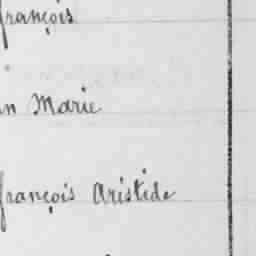 françois
n Marie
françois Aristide